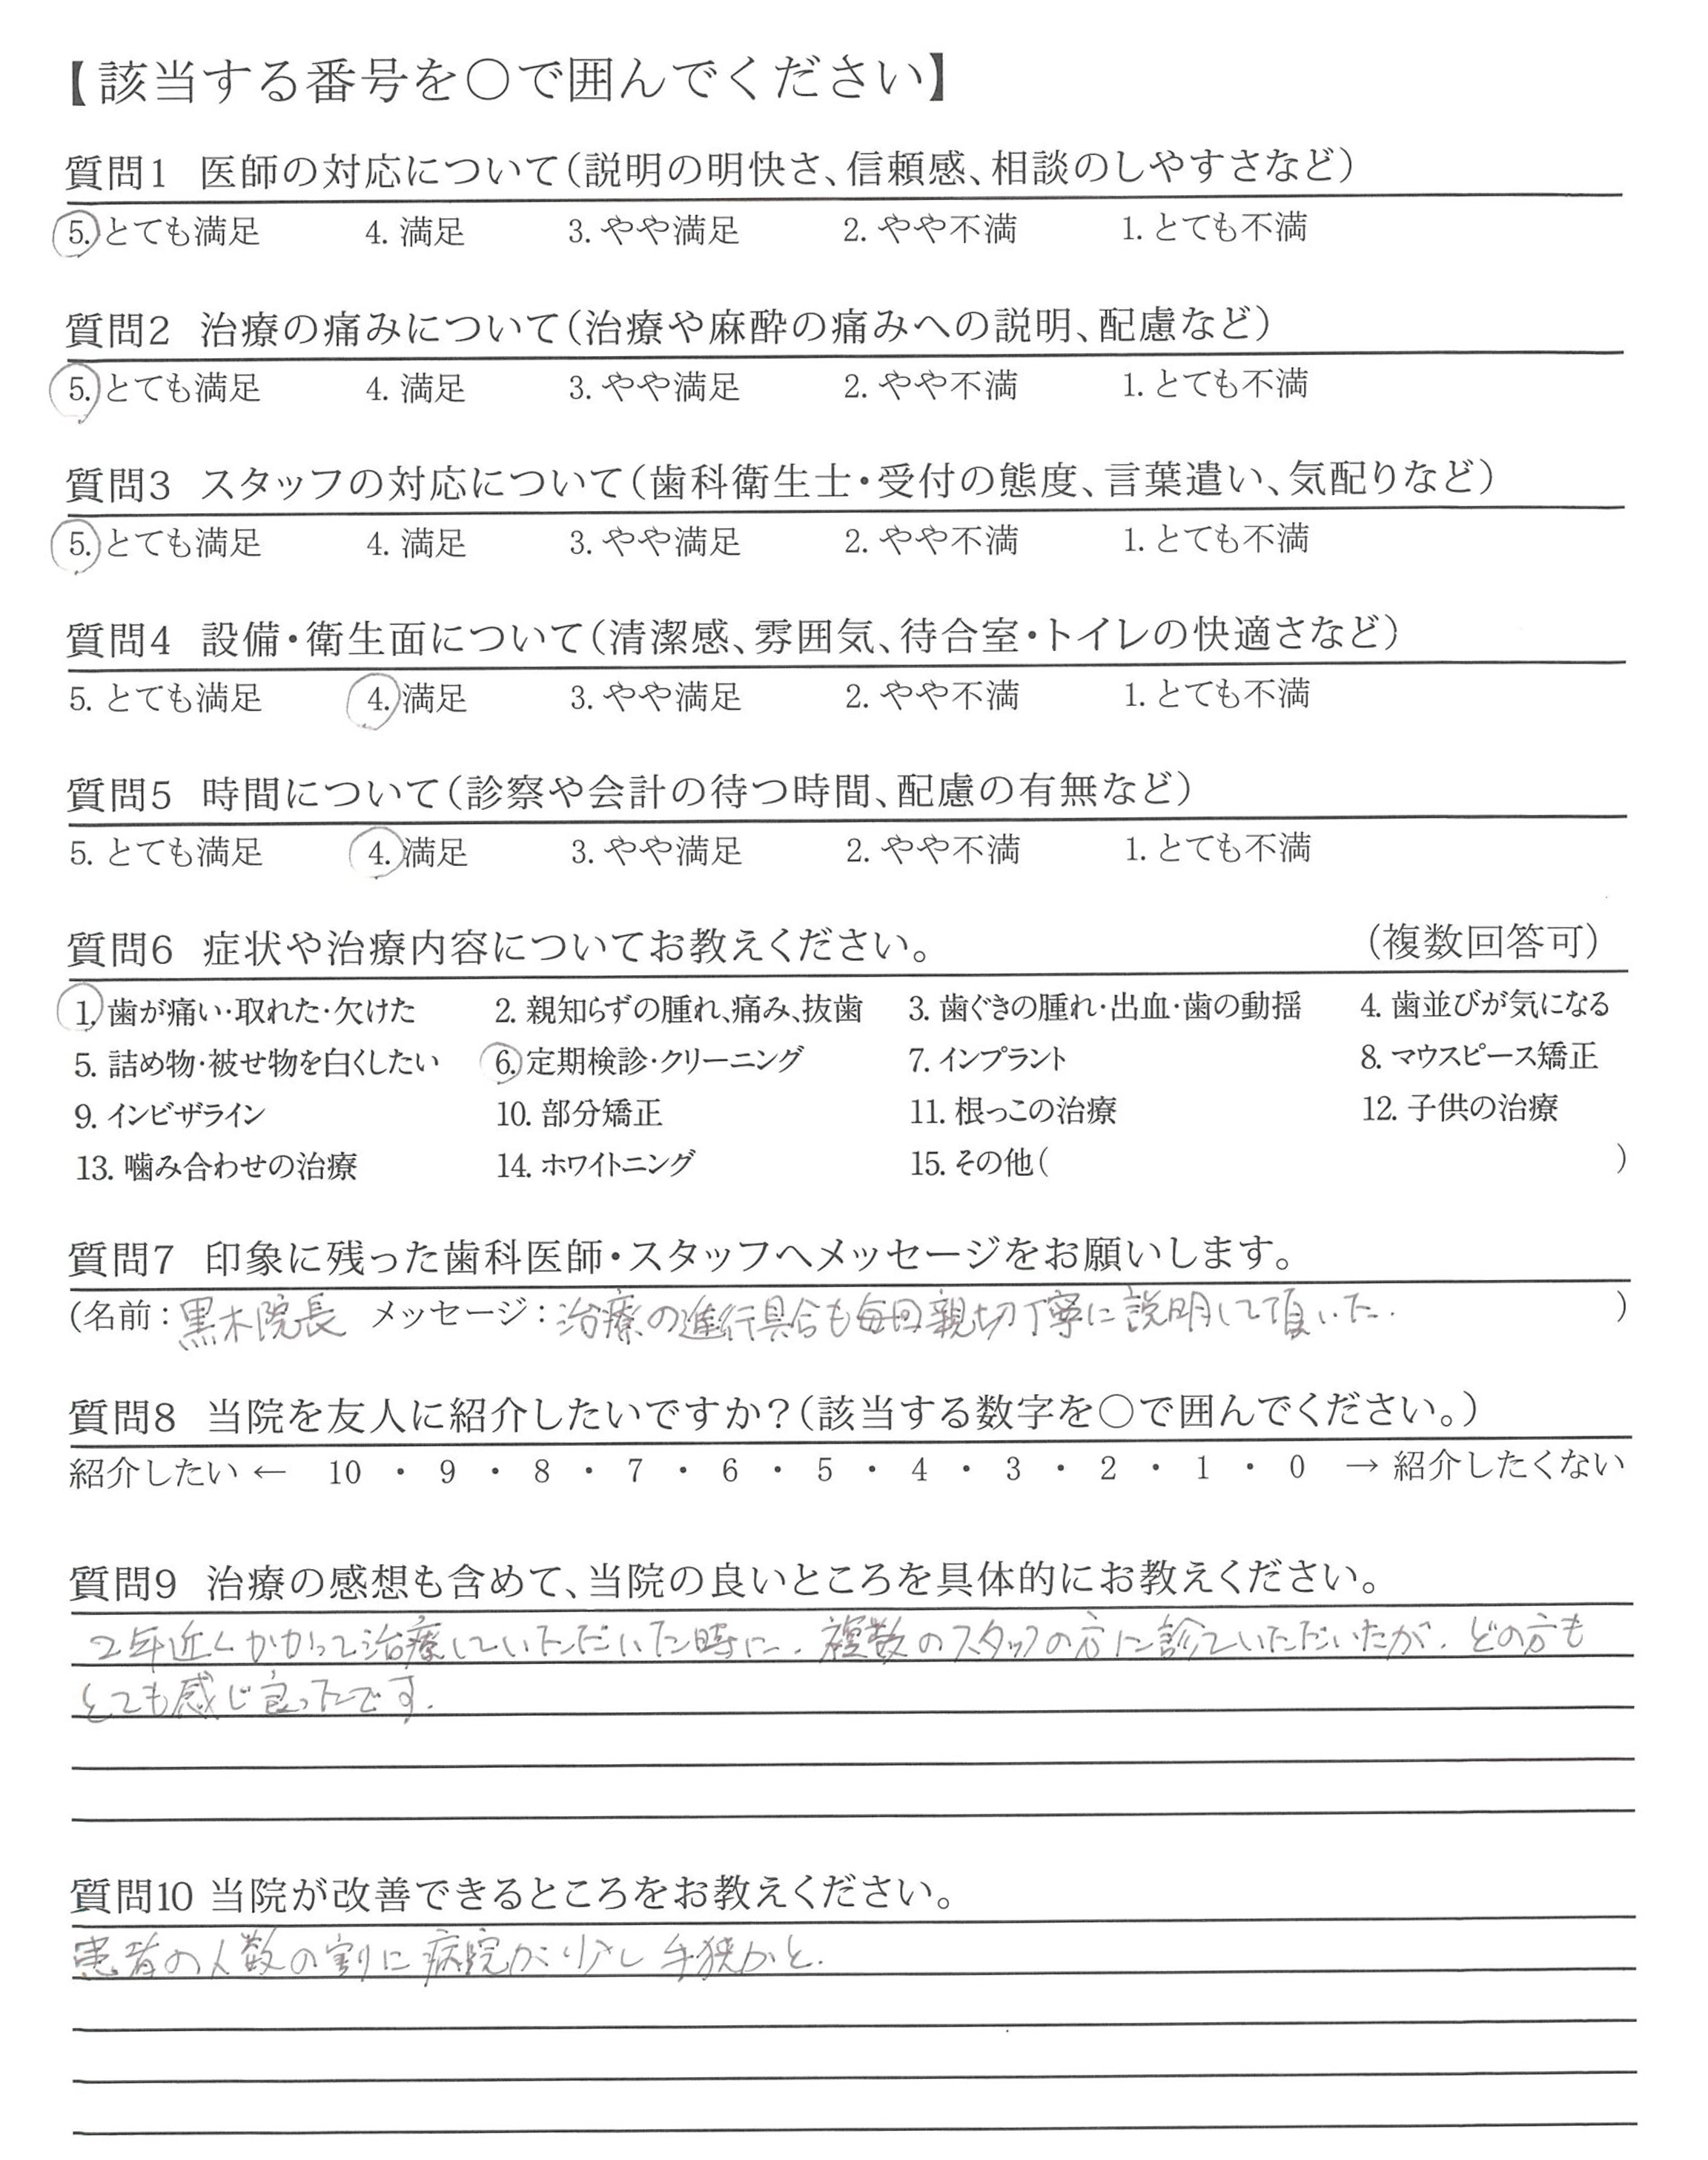 【該当する番号を〇で囲んでください】
質問1 医師の対応について(説明の明快さ、信頼感、相談のしやすさなど)
5. とても満足 4. 満足 3. やや満足 2. やや不満 1. とても不満
質問2 治療の痛みについて(治療や麻酔の痛みへの説明、配慮など)
5. とても満足 4. 満足 3. やや満足 2. やや不満 1. とても不満
質問3 スタッフの対応について(歯科衛生士・受付の態度、言葉遣い、気配りなど)
5. とても満足 4. 満足 3. やや満足 2. やや不満 1. とても不満
質問4 設備・衛生面について(清潔感、雰囲気、待合室・トイレの快適さなど)
5. とても満足 4. 満足 3. やや満足 2. やや不満 1. とても不満
質問5 時間について(診察や会計の待つ時間、配慮の有無など)
5. とても満足 4. 満足 3. やや満足 2. やや不満 1. とても不満
質問6 症状や治療内容についてお教えください。 (複数回答可)
1. 歯が痛い・取れた・欠けた 2. 親知らずの腫れ、痛み、抜歯 3. 歯ぐきの腫れ・出血・歯の動揺 4. 歯並びが気になる
5. 詰め物・被せ物を白くしたい 6. 定期検診・クリーニング 7. インプラント 8. マウスピース矯正
9. インビザライン 10. 部分矯正 11. 根っこの治療 12. 子供の治療
13. 噛み合わせの治療 14. ホワイトニング 15. その他( )
質問7 印象に残った歯科医師・スタッフへメッセージをお願いします。
(名前:黒木院長 メッセージ:治療の進行具合も毎回親切丁寧に説明して頂いた. )
質問8 当院を友人に紹介したいですか?(該当する数字を〇で囲んでください。)
紹介したい ← 10 ・ 9 ・ 8 ・ 7 ・ 6 ・ 5 ・ 4 ・ 3 ・ 2 ・ 1 ・ 0 → 紹介したくない
質問9 治療の感想も含めて、当院の良いところを具体的にお教えください。
2年近くかかって治療していただいた時に、複数のスタッフの方に診ていただいたが、どの方も
とても感じ良ったです.
質問10 当院が改善できるところをお教えください。
患者の人数の割に病院が少し手狭かと.